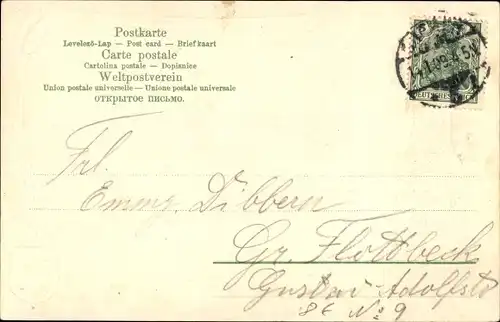 Postkarte
Levelező-Lap — Post card — Briefkaart
Carte postale
Cartolina postale — Dopisnice
Weltpostverein
Union postale universelle — Unione postale universale
ОТКРЫТОЕ ПИСЬМО.
DEUTSCHES
Frl.
Emmy Dibbern
Gr. Flottbeck
Gustav Adolfstr
No 9